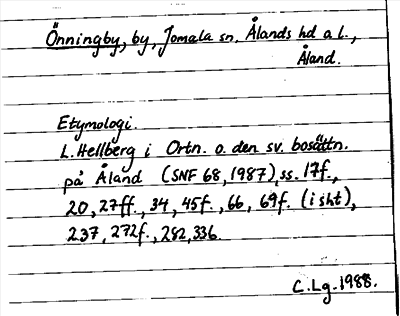 Önningby, by, Jomala sn. Ålands hd a. l.,
Åland.
Etymologi.
L. Hellberg i Ortn. o. den sv. bosättn.
på Åland (SNF 68, 1987), ss. 17f.,
20, 27ff., 34, 45f., 66, 69f. (i sht),
237, 272f., 282, 336.
C. Lg. 1988.